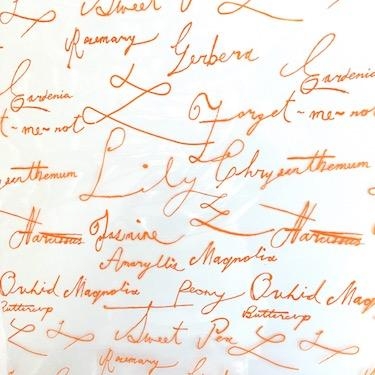 Sweet Pea
Rosemary Gerbera
Gardenia Gardenia
t-me-not Forget-me-not
Chrysanthemum
Lily Chrysanthemum
Narcissus Jasmine Narcissus
Amaryllis Magnolia
Orchid Magnolia Peony Orchid Mag
Buttercup Buttercup
Sweet Pea
Rosemary